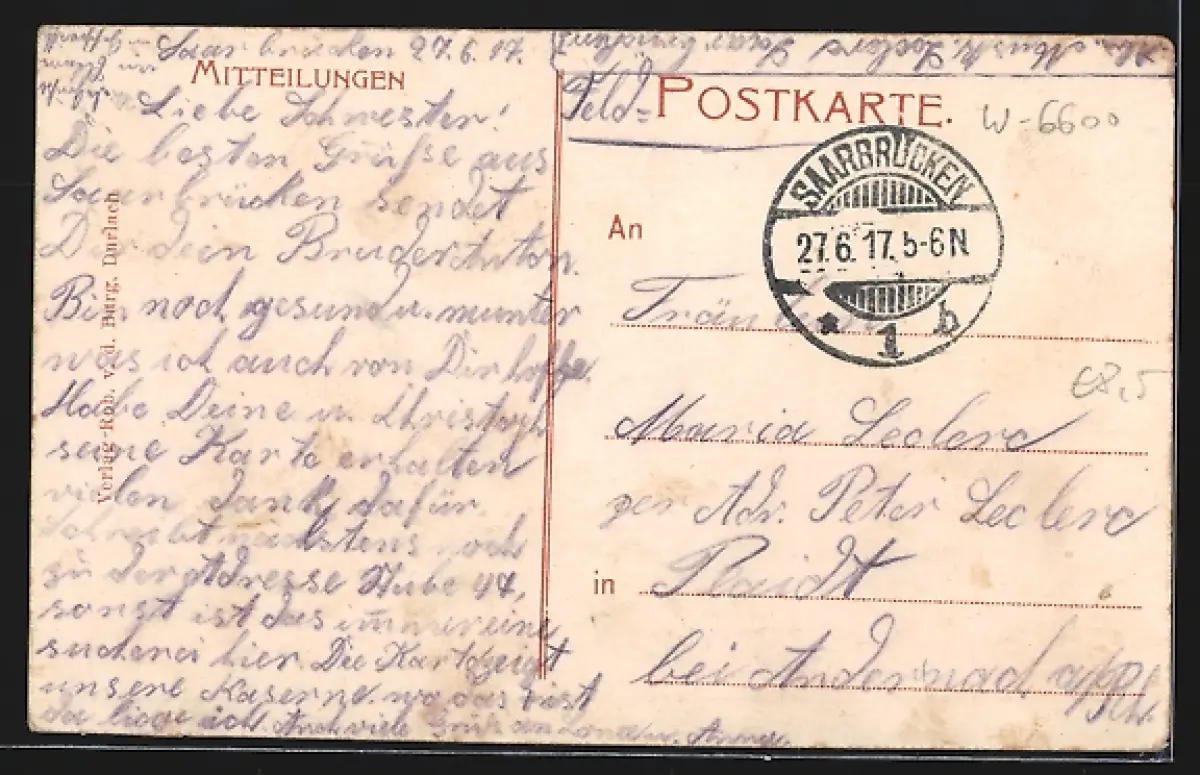 Saarbrücken 27.6.17.
MITTEILUNGEN
Liebe Schwester!
Die besten Grüße aus
Saarbrücken sendet
Dir dein Bruder Anton.
Bin noch gesund u. munter
was ich auch von Dir hoffe.
Habe Deine u. Christoph
seine Karte erhalten
vielen dank dafür.
Schreibt nächstens noch
zu der Adresse Stube 44,
sonst ist das immer eine
sucherei hier. Die Karte zeigt
unsere Kaserne. wo das x ist
da liege ich. Auch viele Grüße an u. Anna.
Verlag Rob. v. d. Burg, Durlach
Abs. Musk. Leclerc Saarbrücken
Feld=
POSTKARTE.
W-6600
SAARBRÜCKEN
27.6.17. 5-6N
* 1 b
An
Fräulein
€8,5
Maria Leclerc
per Adr. Peter Leclerc
in Plaidt
bei Andernach a/Rh